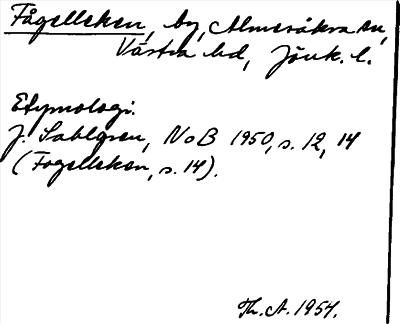 Fågelleken, by, Almesåkra sn,
Västra hd, Jönk. l.
Etymologi:
J. Sahlgren, NoB 1950, s. 12, 14
(Fogelleken, s. 14).
Th. A. 1954.